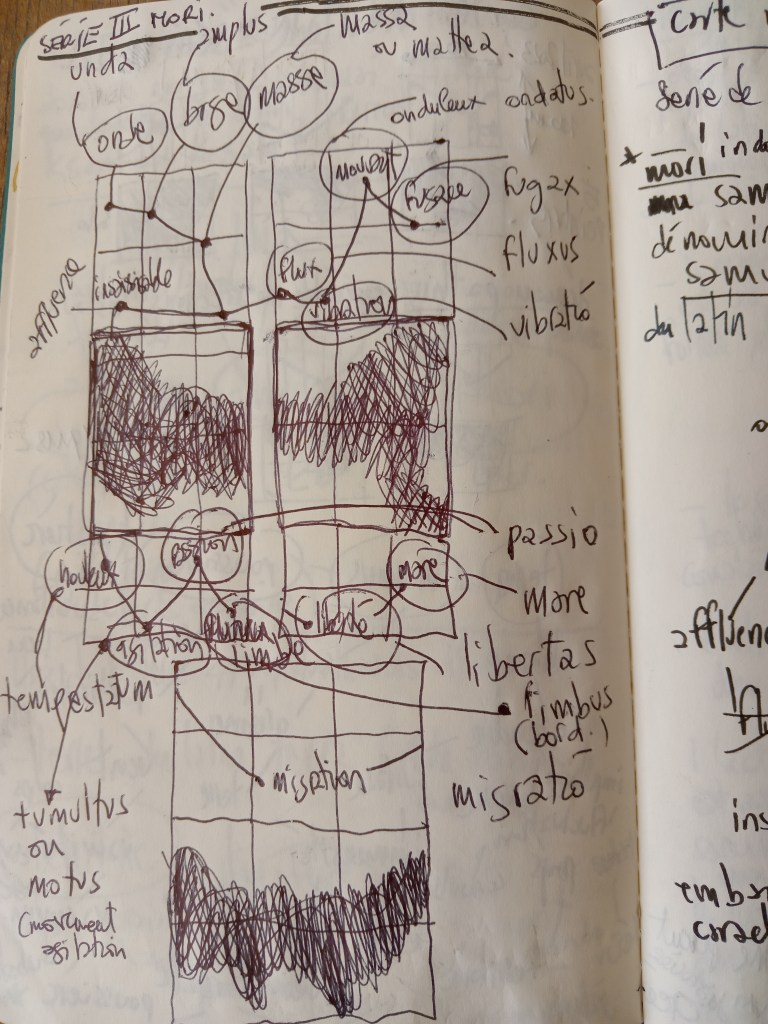 SERIE III MORI.
amplus
massa
ou mattea.
unda
onde
large
masse
onduleux ondatus.
mouvt
fugace
fugax
flux
fluxus
affluence
insaisissable
vibration
vibratió
passio
houleux
passion
mare
mare
agitation
limbe
liberté
libertas
tempestatum
limbus
(bord.)
migration
migratió
tumultus
ou
motus
(movement
agitation
Carte
Serié de
* mori
dénomin
du latin
affluen
ins